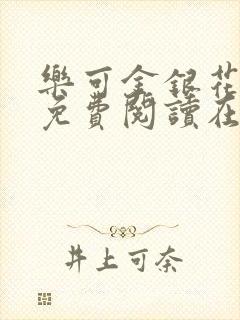 樂可金銀花
免費閱讀在
井上可奈